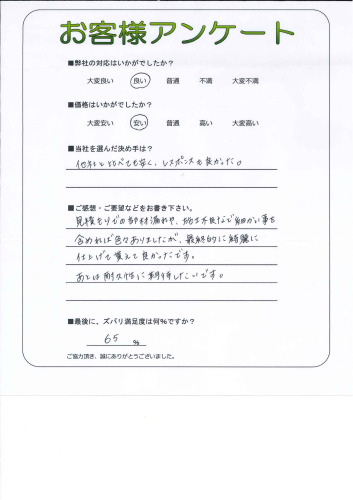 お客様アンケート
■弊社の対応はいかがでしたか？
大変良い 良い 普通 不満 大変不満
■価格はいかがでしたか？
大変安い 安い 普通 高い 大変高い
■当社を選んだ決め手は？
他社と比べても安く、レスポンスも良かった。
■ご感想・ご要望などをお書き下さい。
見積もりでの部材漏れや、施工不良など細かい事を
含めれば色々ありましたが、最終的に綺麗に
仕上げて貰えて良かったです。
あとは耐久性に期待したいです。
■最後に、ズバリ満足度は何％ですか？
65 ％
ご協力頂き、誠にありがとうございました。